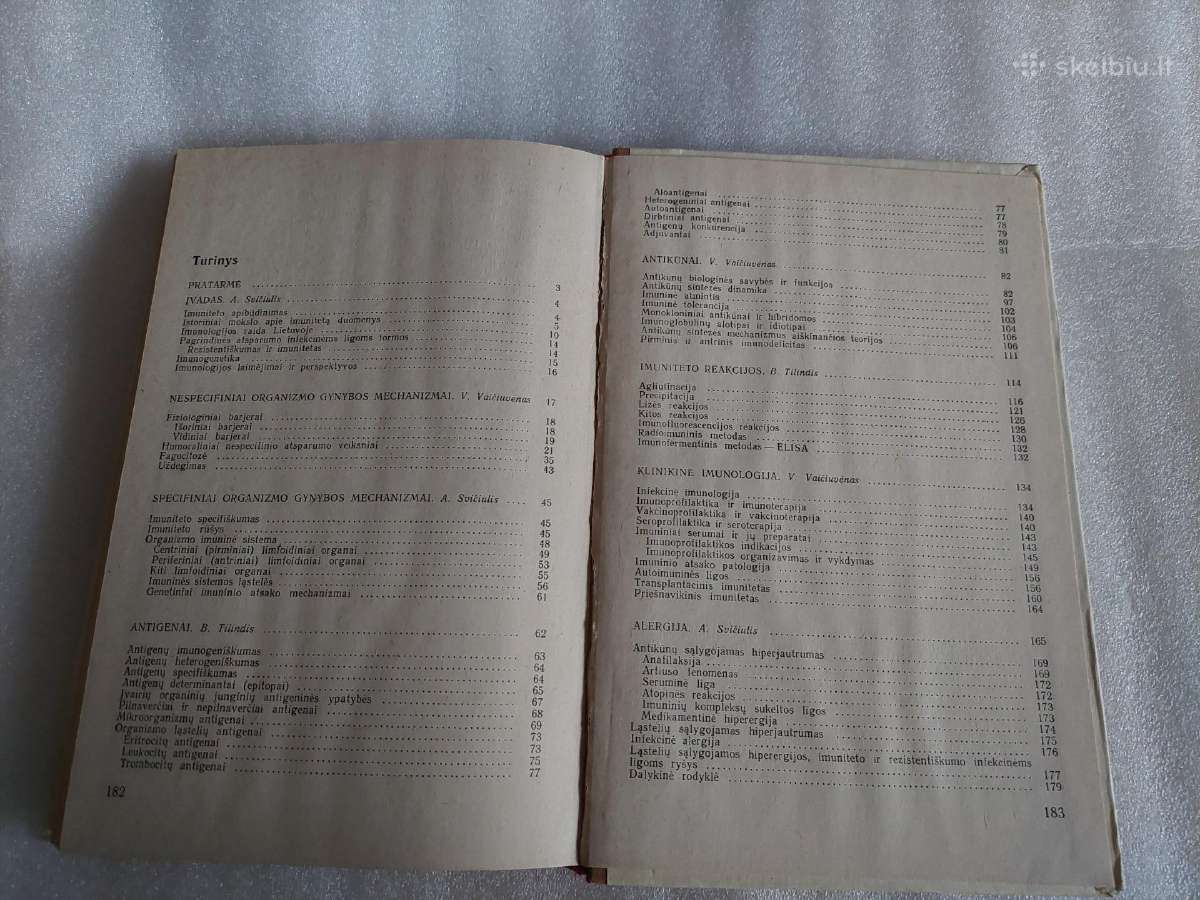 skelbiu.lt
Turinys
PRATARMĖ 3
ĮVADAS. A. Svičiulis 4
Imuniteto apibūdinimas 4
Istoriniai mokslo apie imunitetą duomenys 5
Imunologijos raida Lietuvoje 10
Pagrindinės atsparumo infekcinėms ligoms formos 14
Rezistentiškumas ir imunitetas 14
Imunogenetika 15
Imunologijos laimėjimai ir perspektyvos 16
NESPECIFINIAI ORGANIZMO GYNYBOS MECHANIZMAI. V. Vaičiuvėnas 17
Fiziologiniai barjerai 18
Išoriniai barjerai 18
Vidiniai barjerai 19
Humoraliniai nespecifinio atsparumo veiksniai 21
Fagocitozė 35
Uždegimas 43
SPECIFINIAI ORGANIZMO GYNYBOS MECHANIZMAI. A. Svičiulis 45
Imuniteto specifiškumas 45
Imuniteto rūšys 45
Organizmo imuninė sistema 48
Centriniai (pirminiai) limfoidiniai organai 49
Periferiniai (antriniai) limfoidiniai organai 53
Kiti limfoidiniai organai 55
Imuninės sistemos ląstelės 56
Genetiniai imuninio atsako mechanizmai 61
ANTIGENAI. B. Tilindis 62
Antigenų imunogeniškumas 63
Antigenų heterogeniškumas 64
Antigenų specifiškumas 64
Antigenų determinantai (epitopai) 65
Įvairių organinių junginių antigeninės ypatybės 67
Pilnaverčiai ir nepilnaverčiai antigenai 68
Mikroorganizmų antigenai 69
Organizmo ląstelių antigenai 73
Eritrocitų antigenai 73
Leukocitų antigenai 75
Trombocitų antigenai 77
182
Aloantigenai 77
Heterogeniniai antigenai 77
Autoantigenai 78
Dirbtiniai antigenai 79
Antigenų konkurencija 80
Adjuvantai 81
ANTIKŪNAI. V. Vaičiuvėnas 82
Antikūnų biologinės savybės ir funkcijos 82
Antikūnų sintezės dinamika 97
Imuninė atmintis 102
Imuninė tolerancija 103
Monokloniniai antikūnai ir hibridomos 104
Imunoglobulinų alotipai ir idiotipai 106
Antikūnų sintezės mechanizmus aiškinančios teorijos 106
Pirminis ir antrinis imunodeficitas 111
IMUNITETO REAKCIJOS. B. Tilindis 114
Agliutinacija 116
Precipitacija 121
Lizės reakcijos 126
Kitos reakcijos 128
Imunofluorescencijos reakcijos 130
Radioimuninis metodas 132
Imunofermentinis metodas — ELISA 132
KLINIKINĖ IMUNOLOGIJA. V. Vaičiuvėnas 134
Infekcinė imunologija 134
Imunoprofilaktika ir imunoterapija 140
Vakcinoprofilaktika ir vakcinoterapija 140
Seroprofilaktika ir seroterapija 143
Imuniniai serumai ir jų preparatai 143
Imunoprofilaktikos indikacijos 145
Imunoprofilaktikos organizavimas ir vykdymas 149
Imuninio atsako patologija 156
Autoimuninės ligos 156
Transplantacinis imunitetas 160
Priešnavikinis imunitetas 164
ALERGIJA. A. Svičiulis 165
Antikūnų sąlygojamas hiperjautrumas 169
Anafilaksija 169
Artiuso fenomenas 172
Seruminė liga 172
Atopinės reakcijos 173
Imuninių kompleksų sukeltos ligos 173
Medikamentinė hiperergija 174
Ląstelių sąlygojamas hiperjautrumas 175
Infekcinė alergija 176
Ląstelių sąlygojamos hiperergijos, imuniteto ir rezistentiškumo infekcinėms
ligoms ryšys 177
Dalykinė rodyklė 179
183